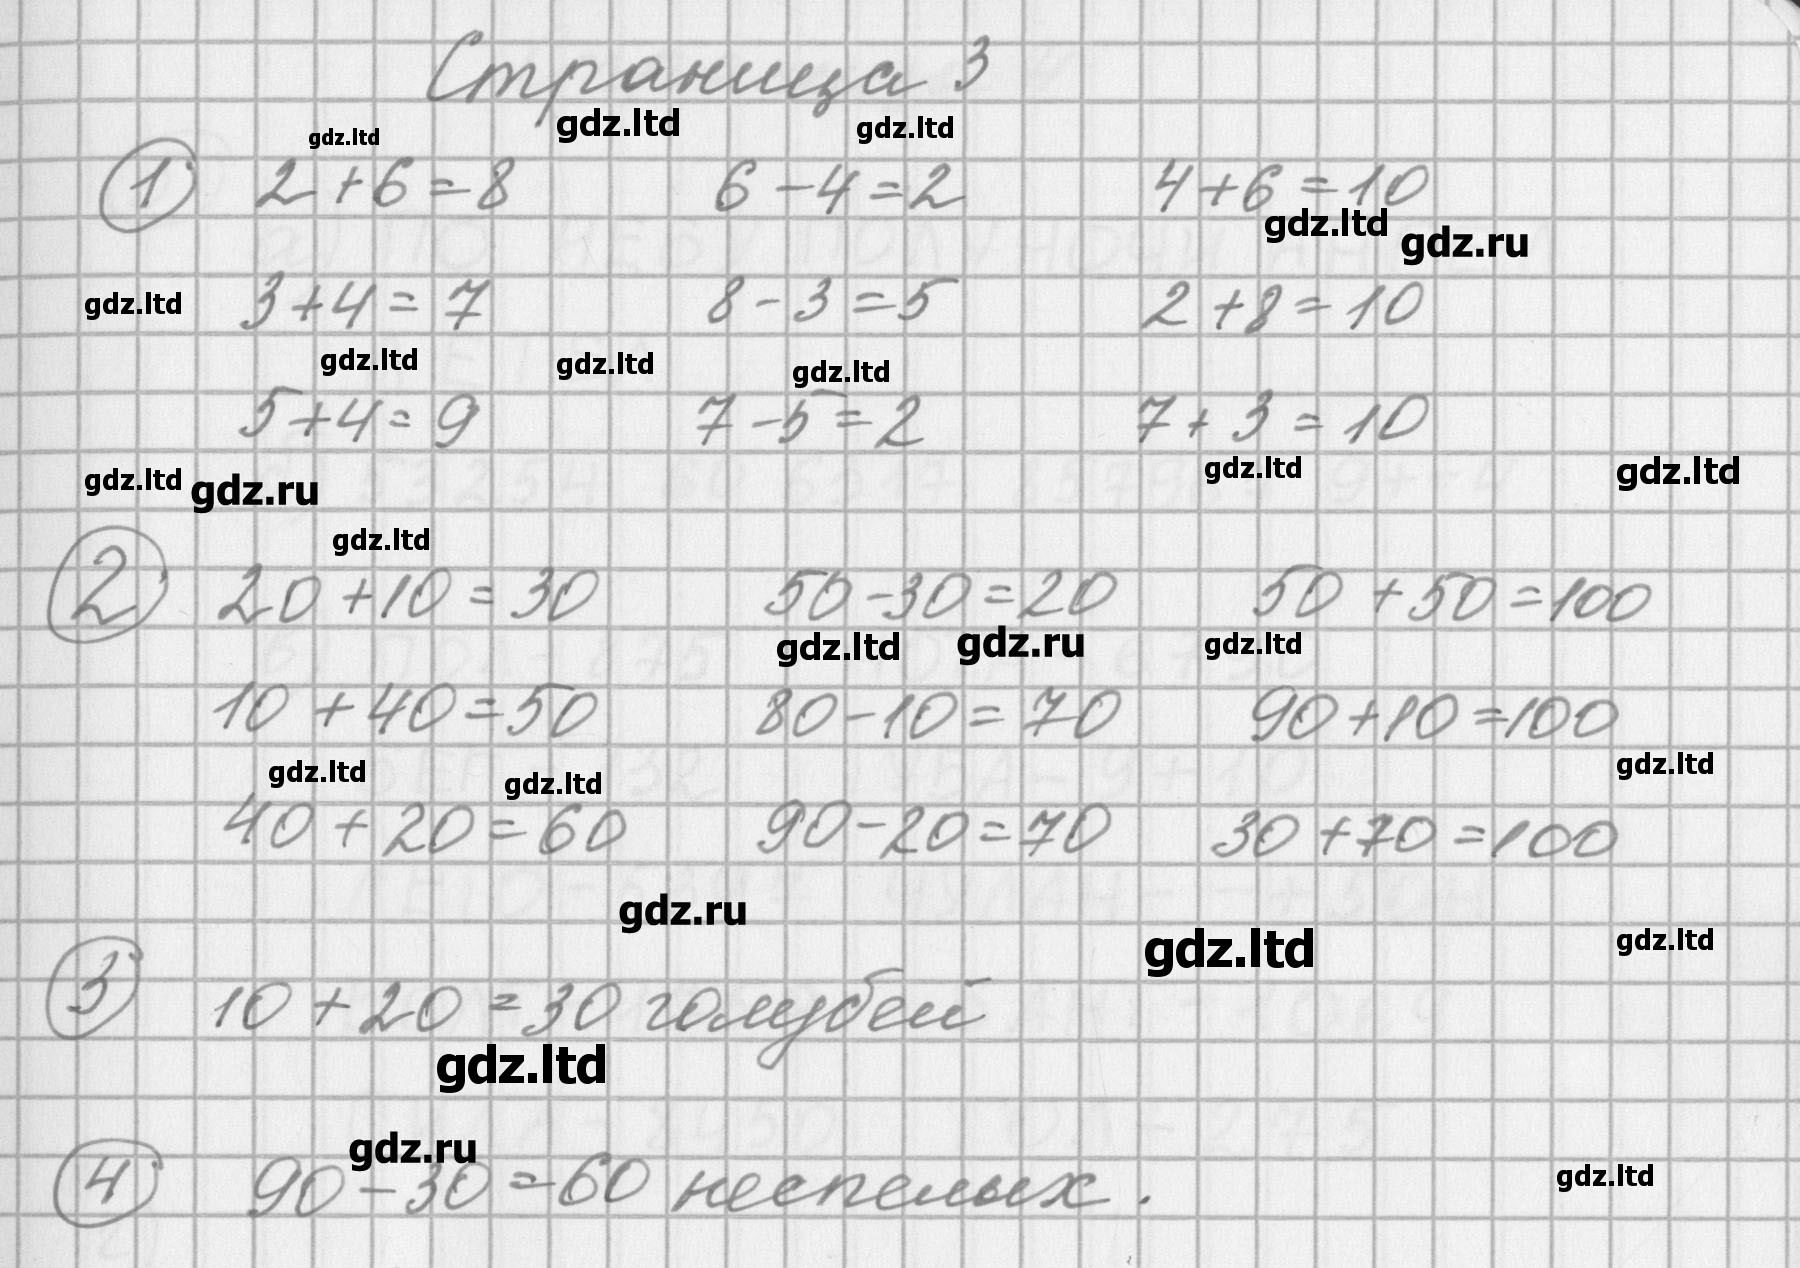 Страница 3
gdz.ltd gdz.ltd gdz.ltd
1 2+6=8 6-4=2 4+6=10
gdz.ltd gdz.ru
gdz.ltd 3+4=7 8-3=5 2+8=10
gdz.ltd gdz.ltd gdz.ltd
5+4=9 7-5=2 7+3=10
gdz.ltd gdz.ru gdz.ltd gdz.ltd
gdz.ltd
2 20+10=30 50-30=20 50+50=100
gdz.ltd gdz.ru gdz.ltd
10+40=50 80-10=70 90+10=100
gdz.ltd gdz.ltd gdz.ltd
40+20=60 90-20=70 30+70=100
gdz.ru
gdz.ltd gdz.ltd
3 10+20=30 голубей
gdz.ltd
gdz.ru
4 90-30=60 неспелых.
gdz.ltd